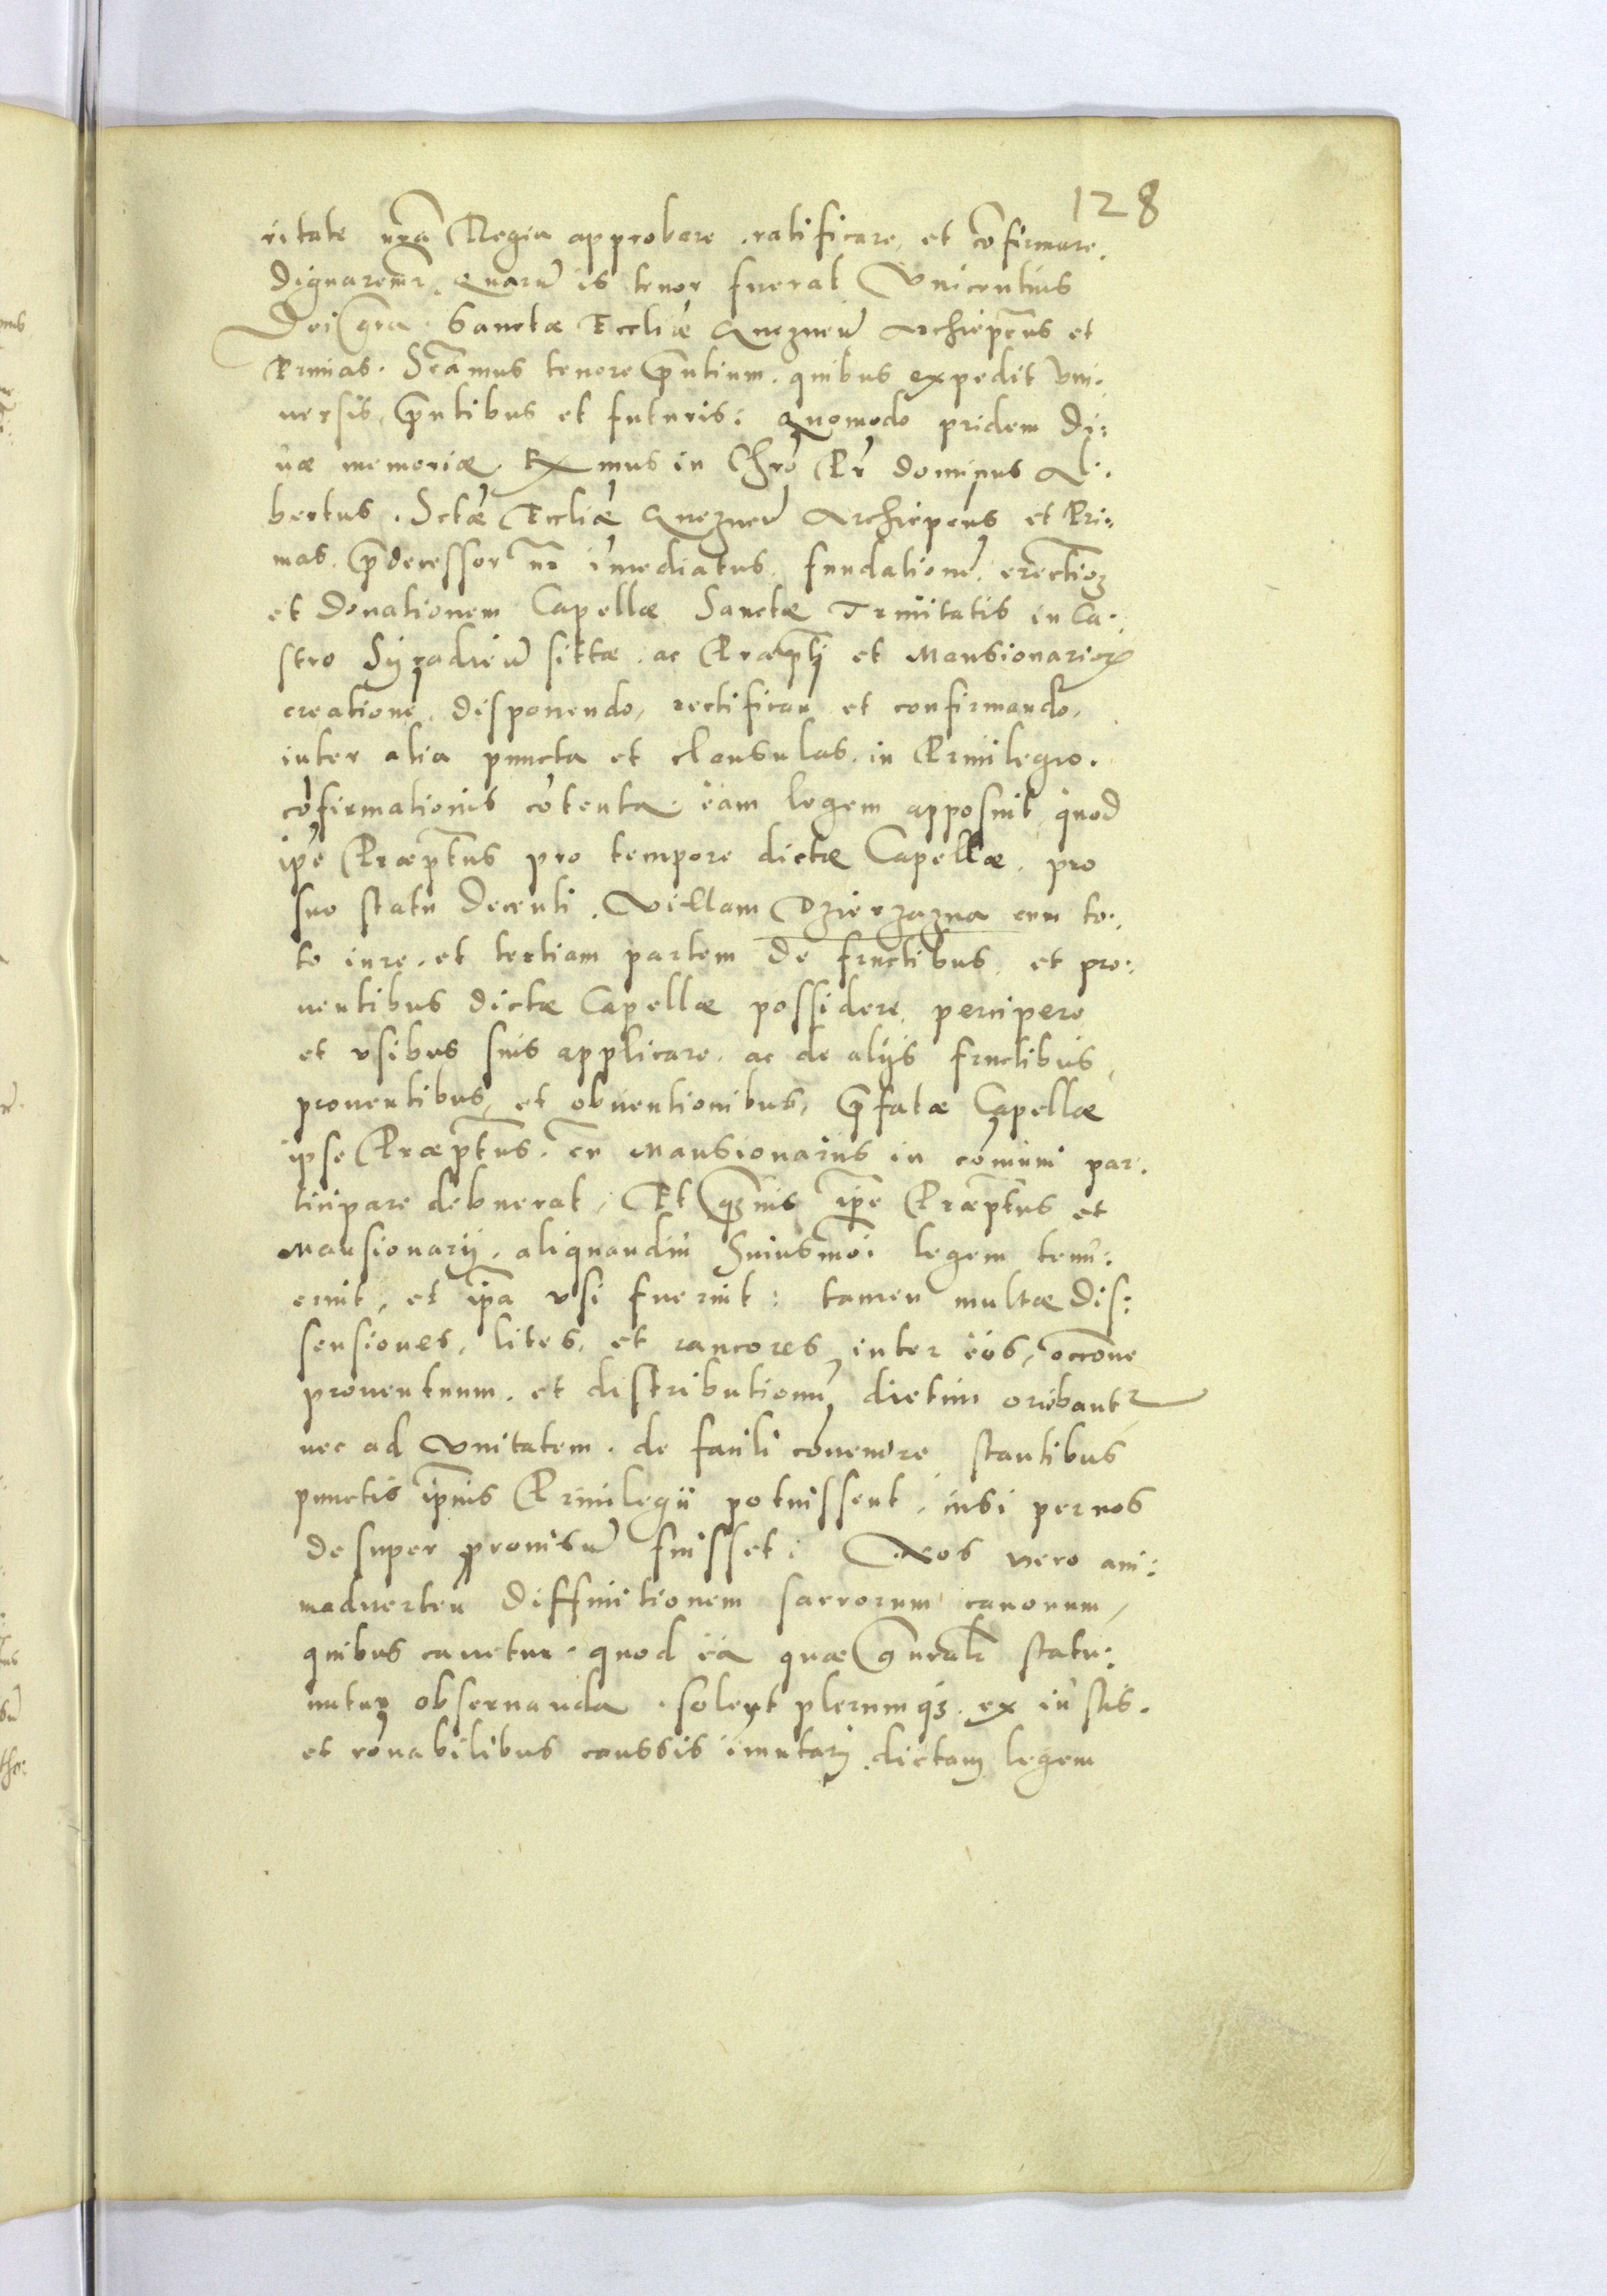 128
ritate nrã Regia approbare, ratificare, et cõfirmare,
dignaremr̃. Quarũ is tenor fuerat Vnicentius
Dei grã Sanctæ Eccliæ Gneznen̄ Archiepc̃us et
Primas. Scãmus tenore p̃ntium. quibus expedit vni:
uersis, p̃ntibus et futuris: Quomodo pridem di:
uæ memoriæ. Rx̃mus in Chrõ Pr̃ dominus Al:
bertus. Sctæ Eccliæ Gneznen̄ Archiepcus et Pri:
mas. p̃decessor nr̃ im̃ediatus. fundationẽ. erectioȝ
et donationem Capellæ Sanctæ Trinitatis in Ca:
stro Syradien̄ sittæ. ac Præpti et Mansionarioꝝ
creationẽ, disponendo, rectifican et confirmando,
inter alia puncta et clausulas. in Priuilegio.
cõfirmationis cõtenta. eam legem apposuit, quod
ipẽ Præptus pro tempore dictæ Capellæ. pro
suo statu decenti. Villam Dzierzazna cum to:
to iure. et tertiam partem de fructibus, et pro:
uentibus dictæ Capellæ possidere, percipere
et vsibus suis applicare. ac de alijs fructibus,
prouentibus, et obuentionibus, p̃fatæ Capellæ
ipse Præptus. cũ Mansionarijs in cõmuni par:
ticipare debuerat. Et qȝuis ipẽ Præptus et
Mansionarij. aliquandiu huiusmõi legem tenu:
erint, et ip̃a vsi fuerint: tamen multæ dis:
sensiones, lites, et rancores, inter eos, occõne
prouentuum. et distributionũ, dietim oriebantr
nec ad vnitatem. de facili cõuenire stantibus
punctis ip̃ius Priuilegii potuissent, nisi per nos
desuper prouisũ fuisset: Nos vero ani:
maduerten̄ diffinitionem sacrorum canonum,
quibus cauetur. quod ea quæ gñralr̃ statu:
untur obseruanda. solent plerumqȝ. ex iustis.
et rõnabilibus caussis im̃utari, dictam legem